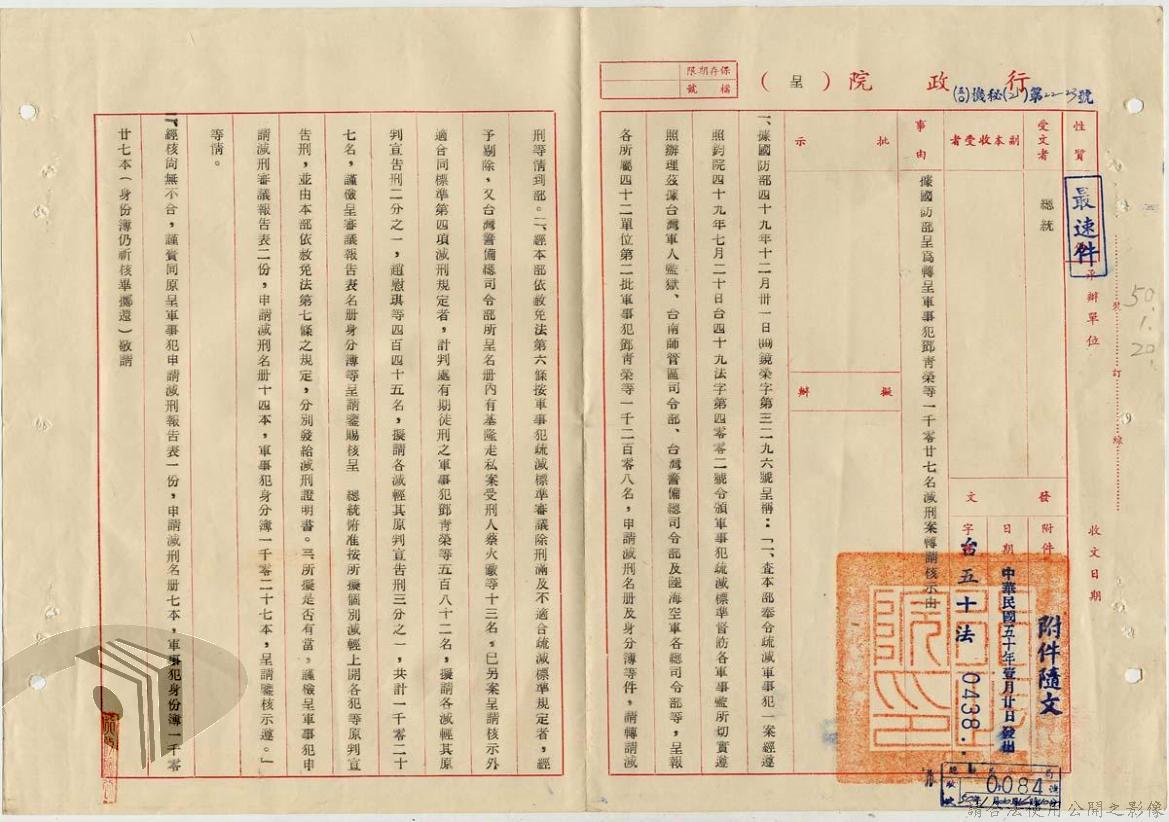 行政院（呈）
(50)機秘(乙)第22-23號
保存期限
檔號
性質
最速件
承辦單位
收文日期
裝 訂 線
50.
1.
20.
受文者
總統
副本收受者
發文
附件
附件隨文
日期
中華民國五十年壹月廿日發出
字號
台五十法0438
事由
據國防部呈爲轉呈軍事犯鄧靑榮等一千零廿七名減刑案轉請核示由
批示
擬辦
一、據國防部四十九年十二月卅一日㈣鏡榮字第三二九六號呈稱：「一、査本部奉令疏減軍事犯一案經遵
照鈞院四十九年七月二十日台四十九法字第四零零二號令頒軍事犯疏減標準督飭各軍事監所切實遵
照辦理茲據台灣軍人監獄、台南師管區司令部、台灣警備總司令部及陸海空軍各總司令部等，呈報
各所屬四十二單位第二批軍事犯鄧靑榮等一千二百零八名，申請減刑名册及身分簿等件，請轉請減
刑等情到部。二、經本部依赦免法第六條按軍事犯疏減標準審議除刑滿及不適合疏減標準規定者，經
予剔除，又台灣警備總司令部所呈名册內有基隆走私案受刑人蔡火等十三名，已另案呈請核示外
適合同標準第四項減刑規定者，計判處有期徒刑之軍事犯鄧靑榮等五百八十二名，擬請各減輕其原
判宣告刑二分之一，趙慰琪等四百四十五名，擬請各減輕其原判宣告刑三分之一，共計一千零二十
七名，謹檢呈審議報告表名册身分簿等呈請鑒賜核呈 總統俯准按所擬個別減輕上開各犯等原判宣
告刑，並由本部依赦免法第七條之規定，分別發給減刑證明書。三、所擬是否有當，謹檢呈軍事犯申
請減刑審議報告表二份，申請減刑名册十四本，軍事犯身分簿一千零二十七本，呈請鑒核示遵。」
等情。
二、經核尚無不合，謹賫同原呈軍事犯申請減刑報告表一份，申請減刑名册七本，軍事犯身份簿一千零
廿七本（身份簿仍祈核畢擲還）敬請
0084
請合法使用公開之影像